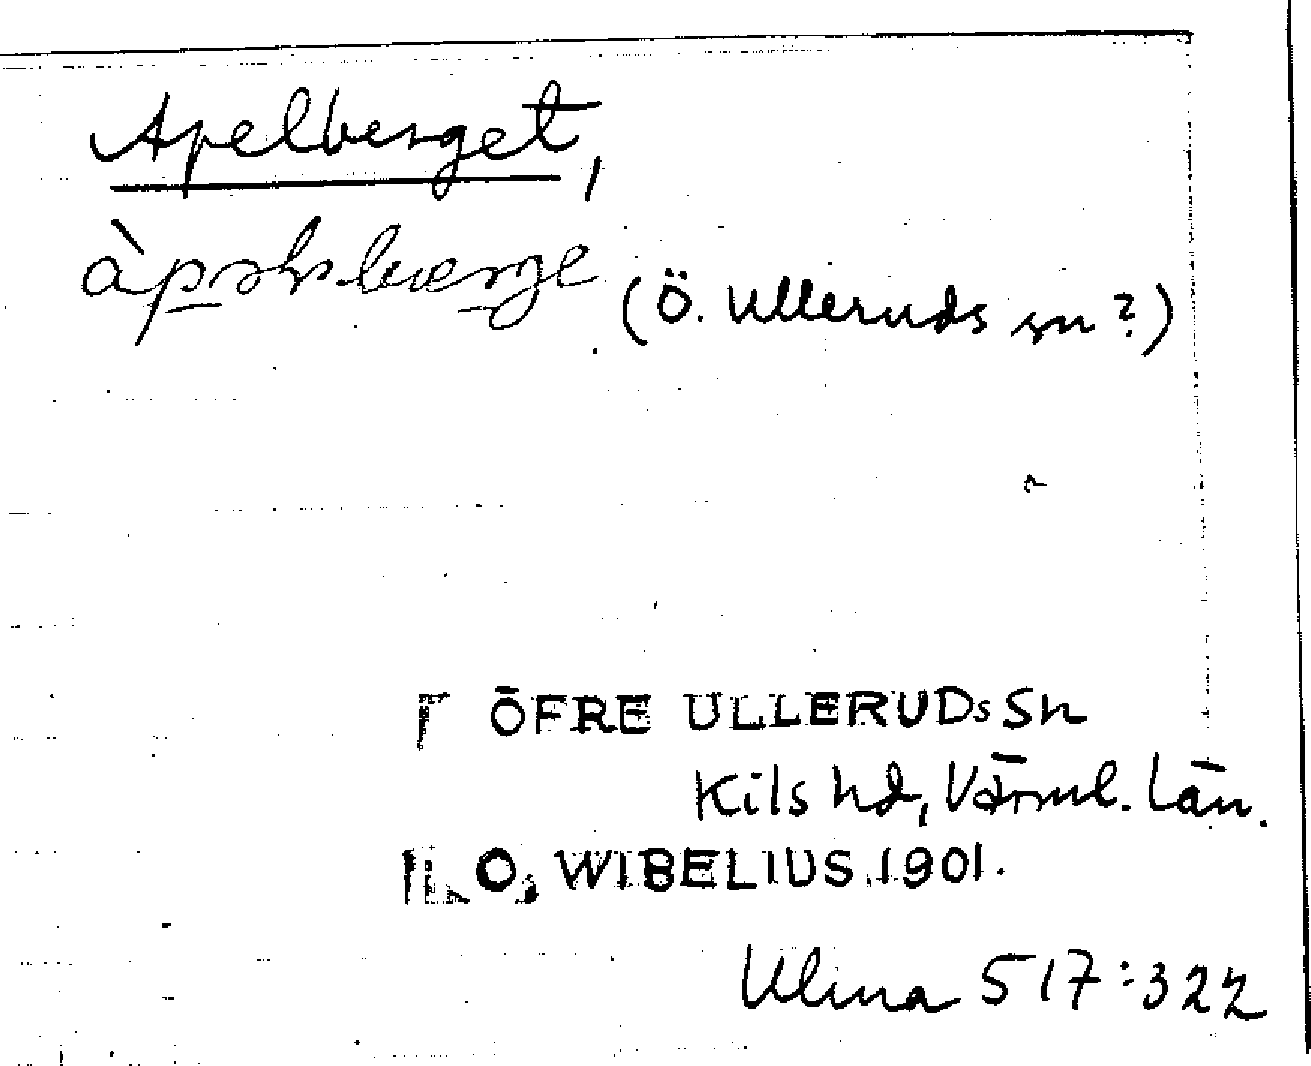 Apelberget,
(Ö. Ulleruds sn?)
ÖFRE ULLERUDs Sn
Kils hd, Värml. län.
O. WIBELIUS 1901.
Ulma 517:322